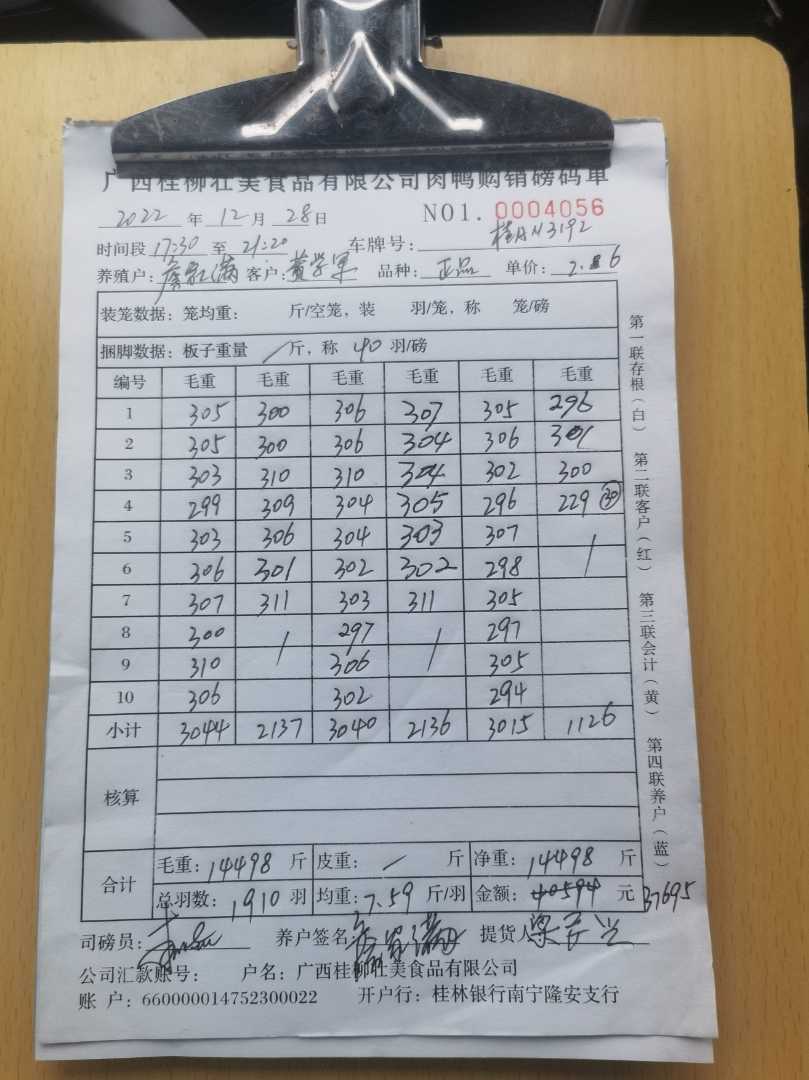 广西桂柳壮美食品有限公司肉鸭购销磅码单
2022 年 12 月 28 日 NO1. 0004056
时间段 17:30 至 21:20 车牌号: N3192
养殖户: 满 客户: 黄学军 品种: 正品 单价: 2. 6
装笼数据: 笼均重: 斤/空笼, 装 羽/笼, 称 笼/磅
捆脚数据: 板子重量 / 斤, 称 40 羽/磅
编号 毛重 毛重 毛重 毛重 毛重 毛重
1 305 300 306 307 305 296
2 305 300 306 304 306 301
3 303 310 310 304 302 300
4 299 309 304 305 296 229 (30)
5 303 306 304 303 307 /
6 306 301 302 302 298
7 307 311 303 311 305
8 300 / 297 / 297
9 310 306 305
10 306 302 294
小计 3044 2137 3040 2136 3015 1126
核算
合计 毛重: 14498 斤 皮重: / 斤 净重: 14498 斤
总羽数: 1910 羽 均重: 7.59 斤/羽 金额: 40594 元 37695
司磅员: 养户签名: 满 提货人:
公司汇款账号: 户名: 广西桂柳壮美食品有限公司
账 户: 660000014752300022 开户行: 桂林银行南宁隆安支行
第一联存根(白) 第二联客户(红) 第三联会计(黄) 第四联养户(蓝)